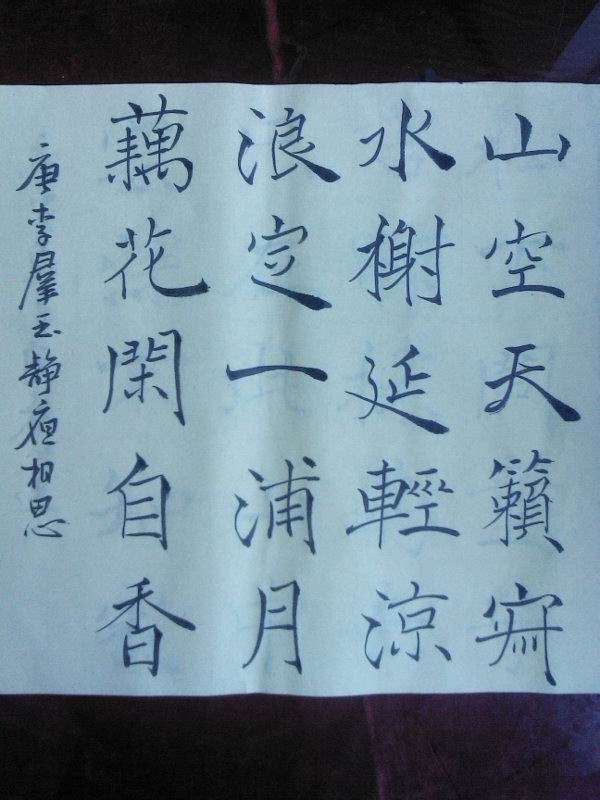 山空天籟寂
水榭延輕涼
浪定一浦月
藕花閑自香
唐李羣玉靜夜相思